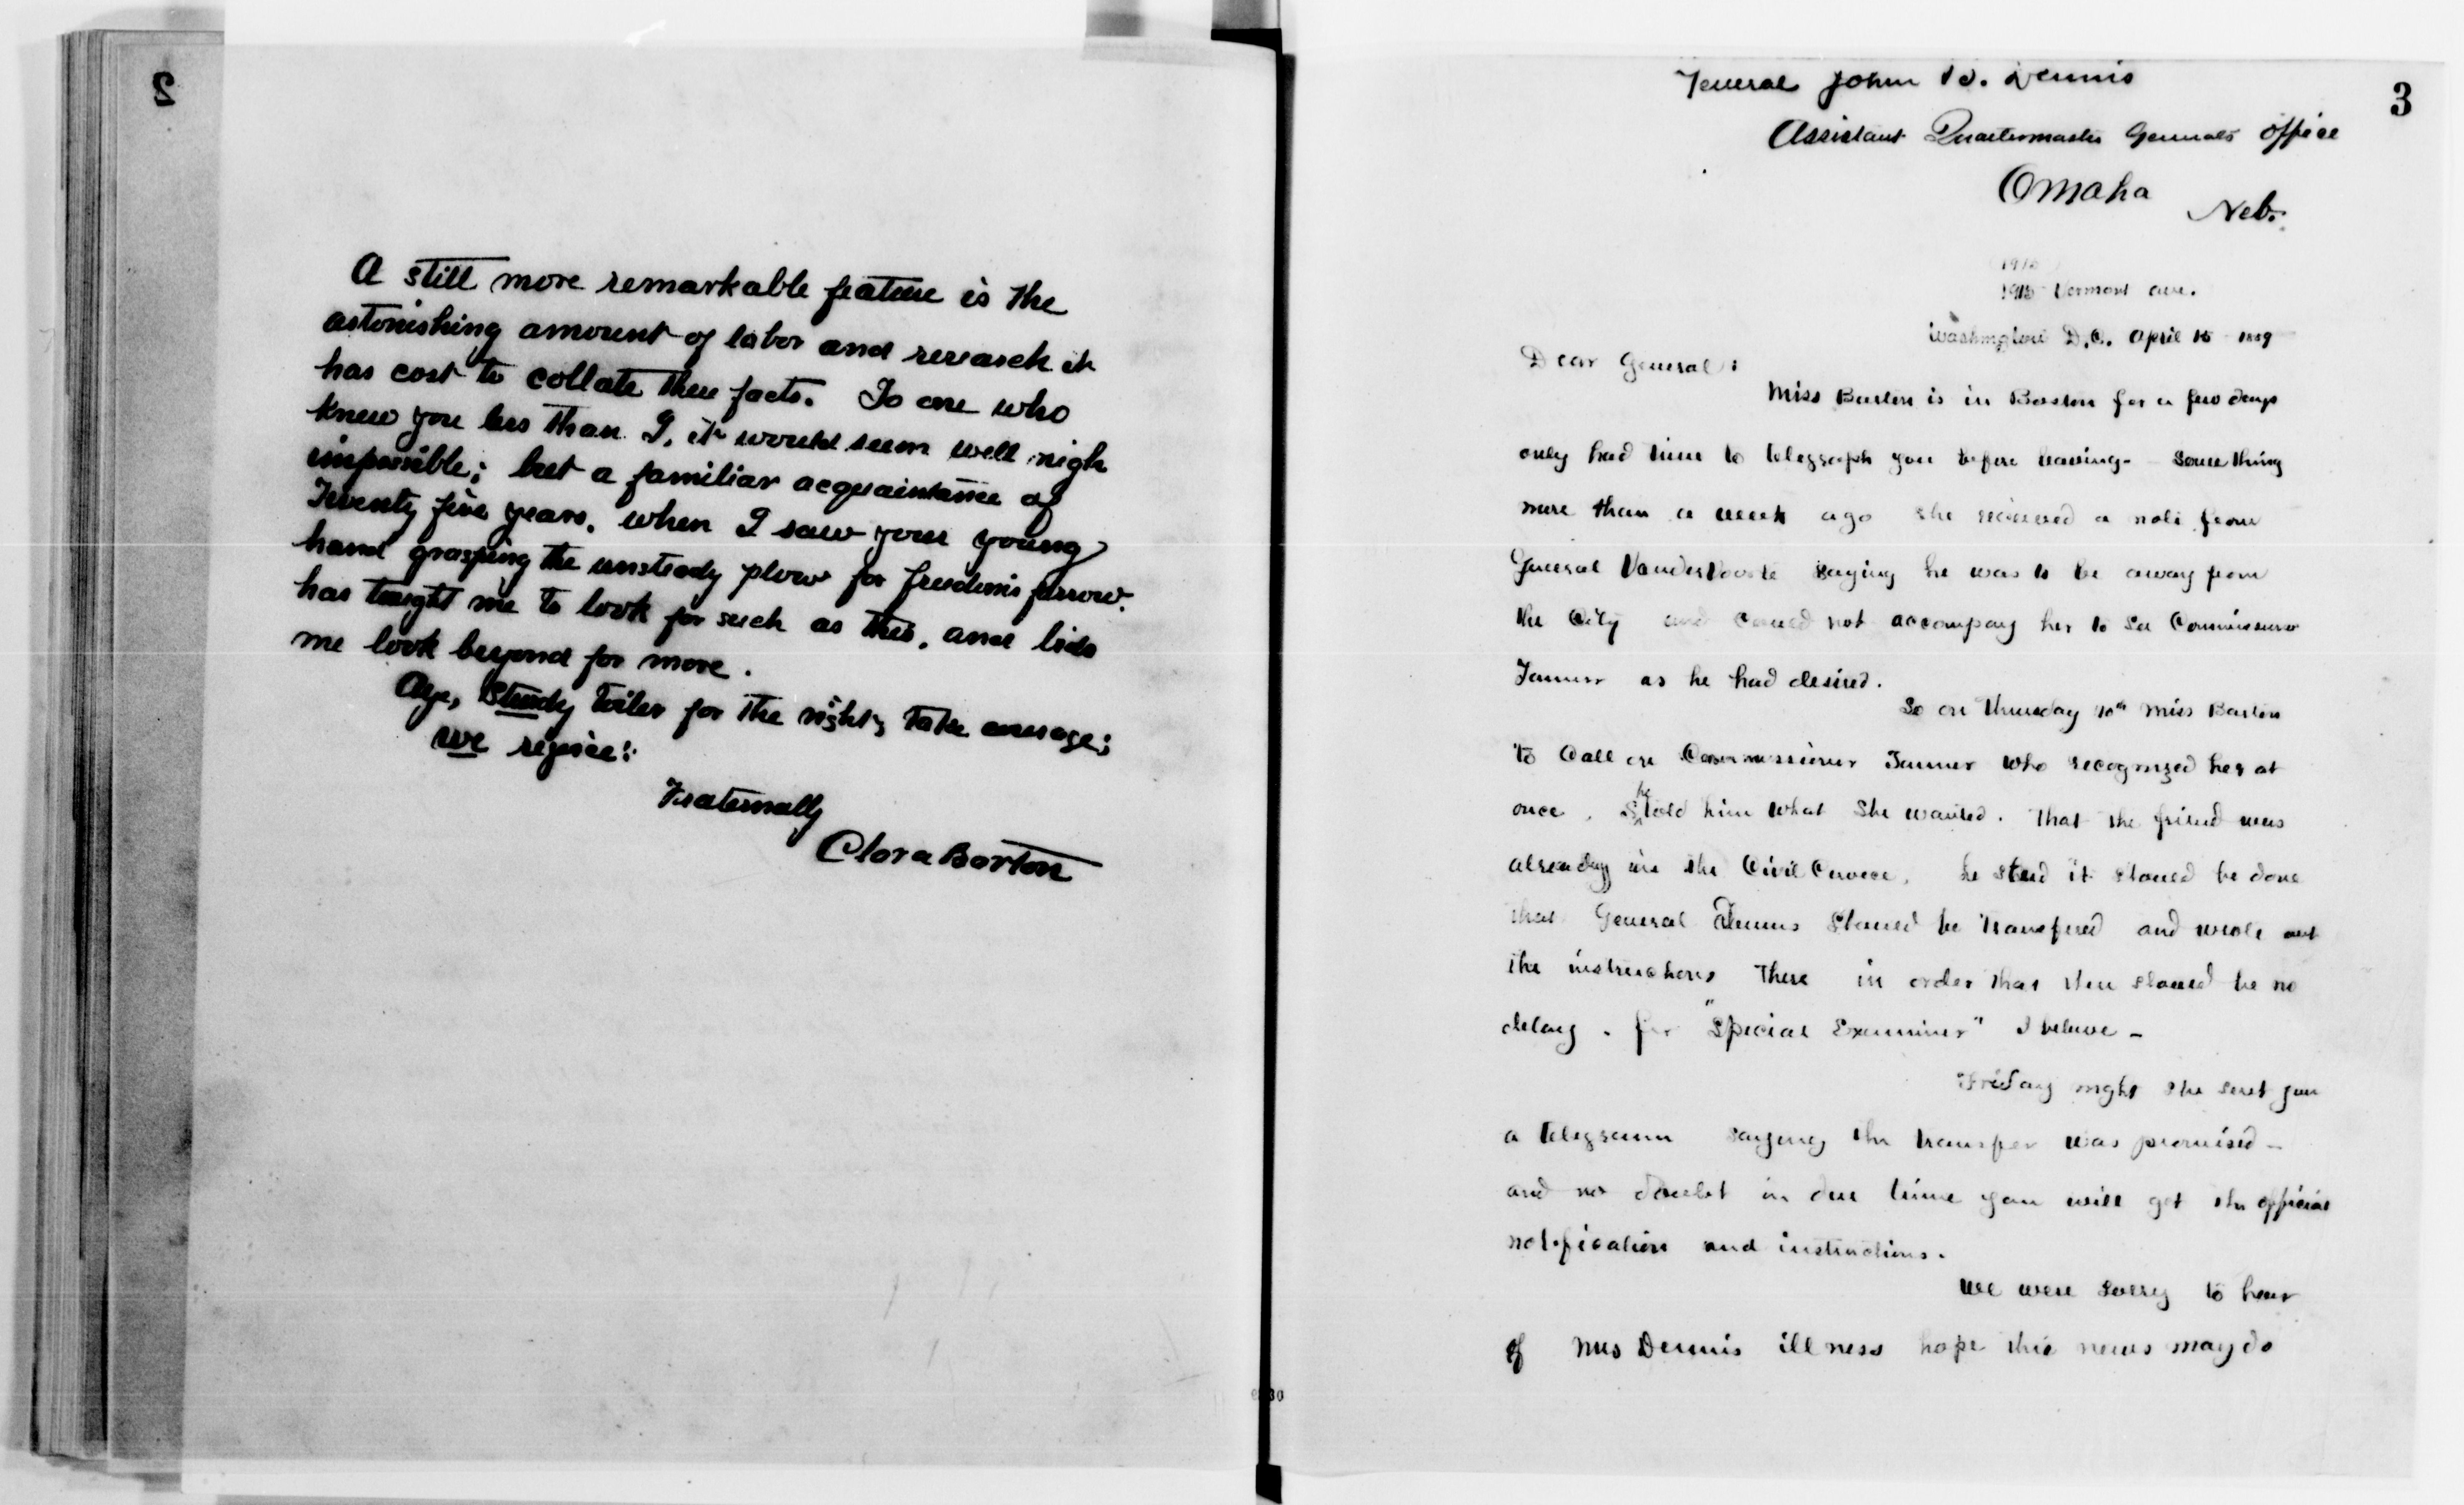 2
A still more remarkable feature is the
astonishing amount of labor and research it
has cost to collate these facts. To one who
knew you less than I, it would seem well nigh
impossible; but a familiar acquaintance of
Twenty five years, when I saw your young
hand grasping the unsteady plow for freedom's furrow.
has taught me to look for such as this, and bids
me look beyond for more.
Aye, Steady toiler for the right, take courage;
we rejoice!
Fraternally
Clara Barton
3
General John B. Dennis
Assistant Quartermaster Generals Office
Omaha
Neb.
1915
1915 Vermont ave.
Washington D.C. April 15 1889
Dear General:
Miss Barton is in Boston for a few days
only had time to telegraph you before leaving - Something
more than a week ago she received a note from
General Vandervoorte saying he was to be away from
the City and could not accompany her to see Commissioner
Tanner as he had desired.
So on Thursday 10th Miss Barton
to Call on Commissioner Tanner who recognized her at
once. She told him what She wanted. That the friend was
already in the Civil Cervece, he said it should be done
that General Dennis Should be transfered and wrote out
the instructions There in order that there should be no
delay. for "Special Examiner" I believe -
Friday night she sent you
a telegramm saying the transfer was promised -
and no doubt in due time you will get the official
notification and instructions.
We were Sorry to hear
of Mrs Dennis illness hope this news may do
30